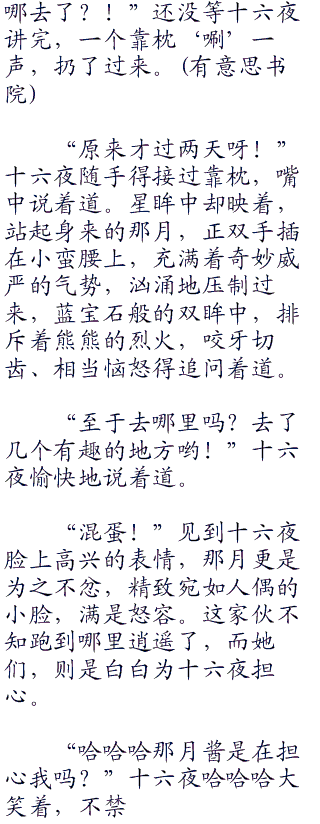 哪去了？！”还没等十六夜
讲完，一个靠枕‘唰’一
声，扔了过来。(有意思书
院)
“原来才过两天呀！”
十六夜随手得接过靠枕，嘴
中说着道。星眸中却映着，
站起身来的那月，正双手插
在小蛮腰上，充满着奇妙威
严的气势，汹涌地压制过
来，蓝宝石般的双眸中，排
斥着熊熊的烈火，咬牙切
齿、相当恼怒得追问着道。
“至于去哪里吗？去了
几个有趣的地方哟！”十六
夜愉快地说着道。
“混蛋！”见到十六夜
脸上高兴的表情，那月更是
为之不忿，精致宛如人偶的
小脸，满是怒容。这家伙不
知跑到哪里逍遥了，而她
们，则是白白为十六夜担
心。
“哈哈哈那月酱是在担
心我吗？”十六夜哈哈哈大
笑着，不禁